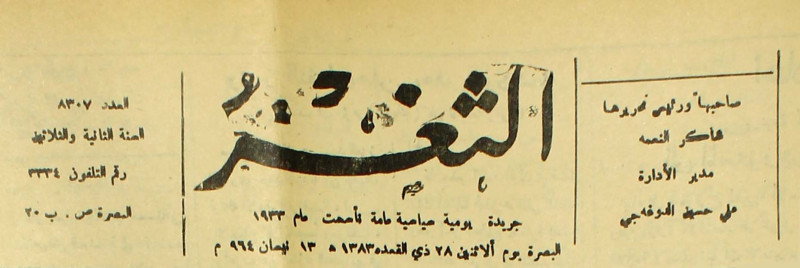 صاحبها ورئيس تحريرها
شاكر النعمه
مدير الأدارة
علي حسين الدوغه‌جي
الثغر
جريدة يومية سياسية عامة تأسست عام ١٩٣٣
البصرة يوم ألاثنين ٢٨ ذي القعده ١٣٨٣ ه ١٣ نيسان ٩٦٤ م
العدد ٨٣٠٧
السنة الثانية والثلاثين
رقم التلفون ٣٣٣٤
البصرة ص . ب ٢٠